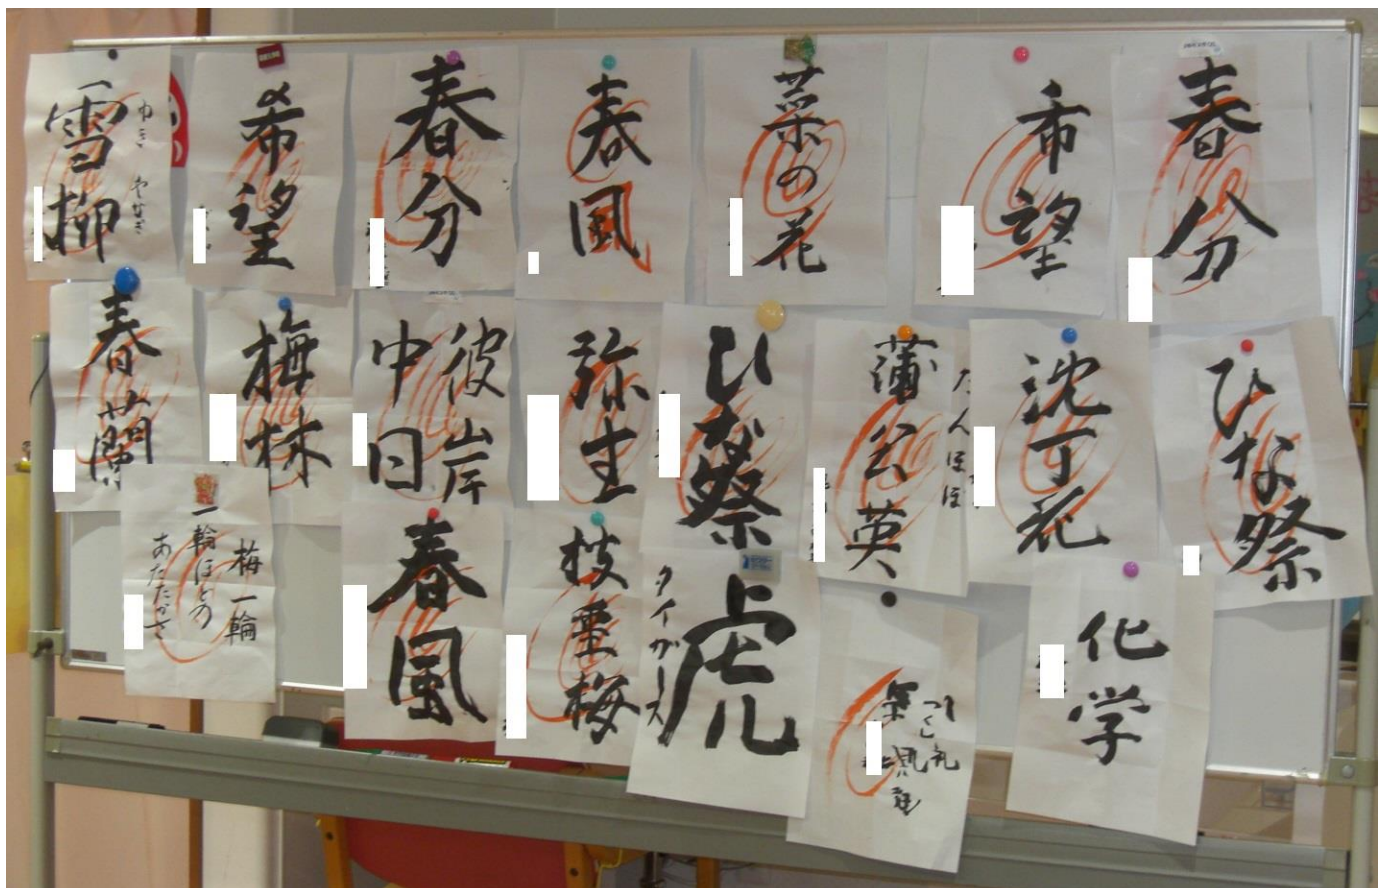 雪柳
ゆき やなぎ
希望
春分
春風
菜の花
希望
春分
春蘭
梅林
彼岸
中日
弥生
ひな祭
蒲公英
たんぽぽ
沈丁花
ひな祭
梅一輪
一輪ほどの
あたたかさ
春風
枝垂梅
虎
タイガース
化学